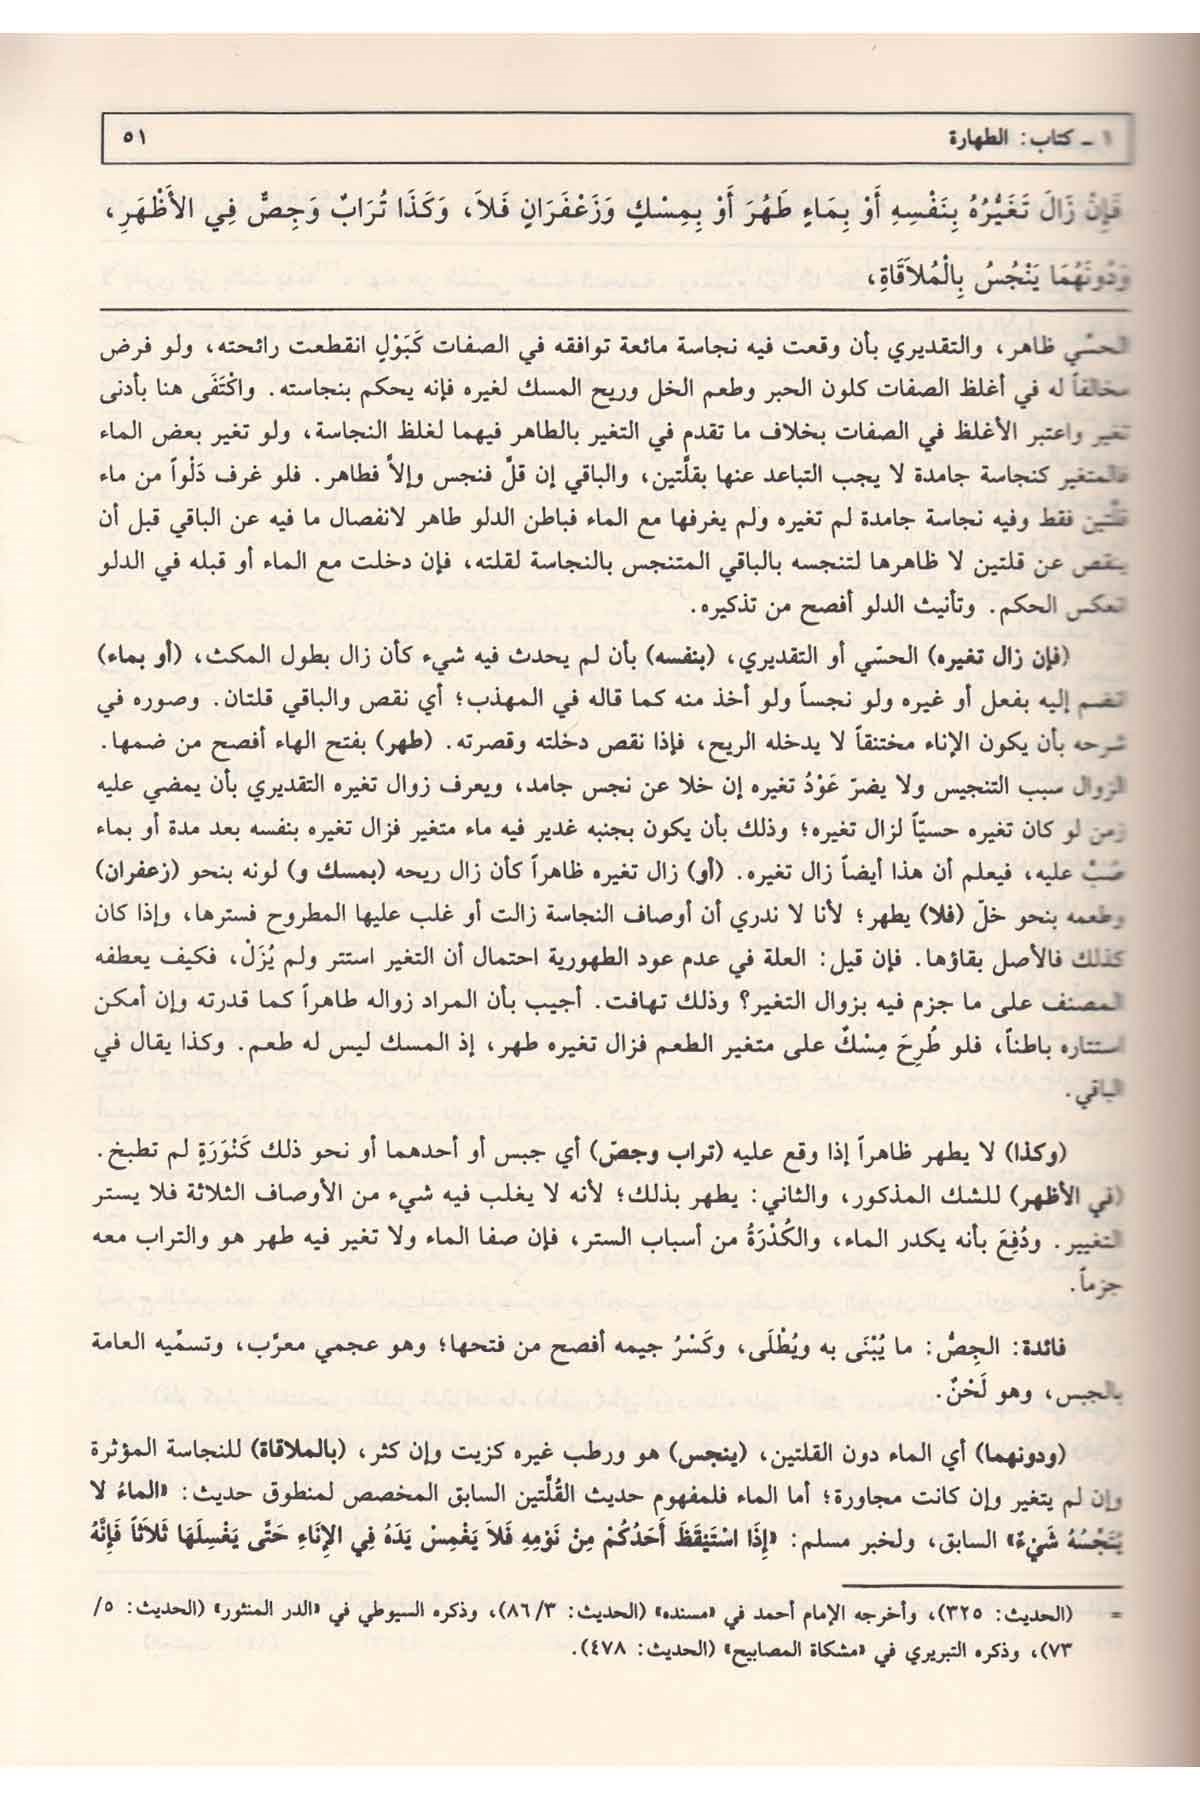 ١ ـ كتاب: الطهارة
٥١
فَإِنْ زَالَ تَغَيُّرُهُ بِنَفْسِهِ أَوْ بِمَاءٍ طَهُرَ أَوْ بِمِسْكٍ وَزَعْفَرَانٍ فَلاَ، وَكَذَا تُرَابٌ وَجِصٌّ فِي الأَظْهَرِ،
وَدُونَهُمَا يَنْجُسُ بِالْمُلاَقَاةِ،
الحسّي ظاهر، والتقديري بأن وقعت فيه نجاسة مائعة توافقه في الصفات كَبَوْلٍ انقطعت رائحته، ولو فرض
مخالفاً له في أغلظ الصفات كلون الحبر وطعم الخل وريح المسك لغيره فإنه يحكم بنجاسته. واكْتَفَى هنا بأدنى
تغير واعتبر الأغلظ في الصفات بخلاف ما تقدم في التغير بالطاهر فيهما لغلظ النجاسة، ولو تغير بعض الماء
فالمتغير كنجاسة جامدة لا يجب التباعد عنها بقلَّتين، والباقي إن قلَّ فنجس وإلاَّ فطاهر. فلو غرف دَلْواً من ماء
قلَّتين فقط وفيه نجاسة جامدة لم تغيره ولم يغرفها مع الماء فباطن الدلو طاهر لانفصال ما فيه عن الباقي قبل أن
ينقص عن قلتين لا ظاهرها لتنجسه بالباقي المتنجس بالنجاسة لقلته، فإن دخلت مع الماء أو قبله في الدلو
انعكس الحكم. وتأنيث الدلو أفصح من تذكيره.
(فإن زال تغيره) الحسّي أو التقديري، (بنفسه) بأن لم يحدث فيه شيء كأن زال بطول المكث، (أو بماء)
انضم إليه بفعل أو غيره ولو نجساً ولو أخذ منه كما قاله في المهذب؛ أي نقص والباقي قلتان. وصوره في
شرحه بأن يكون الإناء مختنقاً لا يدخله الريح، فإذا نقص دخلته وقصرته. (طهر) بفتح الهاء أفصح من ضمها.
لزوال سبب التنجيس ولا يضرّ عَوْدُ تغيره إن خلا عن نجس جامد، ويعرف زوال تغيره التقديري بأن يمضي عليه
زمن لو كان تغيره حسيّاً لزال تغيره؛ وذلك بأن يكون بجنبه غدير فيه ماء متغير فزال تغيره بنفسه بعد مدة أو بماء
صُبّ عليه، فيعلم أن هذا أيضاً زال تغيره. (أو) زال تغيره ظاهراً كأن زال ريحه (بمسك و) لونه بنحو (زعفران)
وطعمه بنحو خلّ (فلا) يطهر؛ لأنا لا ندري أن أوصاف النجاسة زالت أو غلب عليها المطروح فسترها، وإذا كان
كذلك فالأصل بقاؤها. فإن قيل: العلة في عدم عود الطهورية احتمال أن التغير استتر ولم يُزَلْ، فكيف يعطفه
المصنف على ما جزم فيه بزوال التغير؟ وذلك تهافت. أجيب بأن المراد زواله ظاهراً كما قدرته وإن أمكن
استتاره باطناً، فلو طُرِحَ مِسْكٌ على متغير الطعم فزال تغيره طهر، إذ المسك ليس له طعم. وكذا يقال في
الباقي.
(وكذا) لا يطهر ظاهراً إذا وقع عليه (تراب وجصّ) أي جبس أو أحدهما أو نحو ذلك كَنُورَةٍ لم تطبخ.
(في الأظهر) للشك المذكور، والثاني: يطهر بذلك؛ لأنه لا يغلب فيه شيء من الأوصاف الثلاثة فلا يستر
التغيير. ودُفِعَ بأنه يكدر الماء، والكُدْرَةُ من أسباب الستر، فإن صفا الماء ولا تغير فيه طهر هو والتراب معه
جزماً.
فائدة: الجِصُّ: ما يُبْنَى به ويُطْلَى، وكَسْرُ جيمه أفصح من فتحها؛ وهو عجمي معرَّب، وتسمِّيه العامة
بالجبس، وهو لَحْنٌ.
(ودونهما) أي الماء دون القلتين، (ينجس) هو ورطب غيره كزيت وإن كثر، (بالملاقاة) للنجاسة المؤثرة
وإن لم يتغير وإن كانت مجاورة؛ أما الماء فلمفهوم حديث القُلَّتين السابق المخصص لمنطوق حديث: «الماءُ لا
يُنَجِّسُهُ شَيْءٌ» السابق، ولخبر مسلم: «إِذَا اسْتَيْقَظَ أَحَدُكُمْ مِنْ نَوْمِهِ فَلاَ يَغْمِسْ يَدَهُ فِي الإِنَاءِ حَتَّى يَغْسِلَهَا ثَلاَثاً فَإِنَّهُ
= (الحديث: ٣٢٥)، وأخرجه الإمام أحمد في «مسنده» (الحديث: ٨٦/٣)، وذكره السيوطي في «الدر المنثور» (الحديث: ٥/
٧٣)، وذكره التبريزي في «مشكاة المصابيح» (الحديث: ٤٧٨).